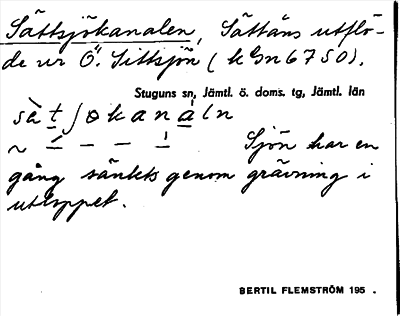 Sättsjökanalen, Sättåns utflö-
de ur Ö. Sittsjön (kSn6750).
Stuguns sn, Jämtl. ö. doms. tg, Jämtl. län
Sjön har en
gång sänkts genom grävning i
utloppet.
BERTIL FLEMSTRÖM 195 .